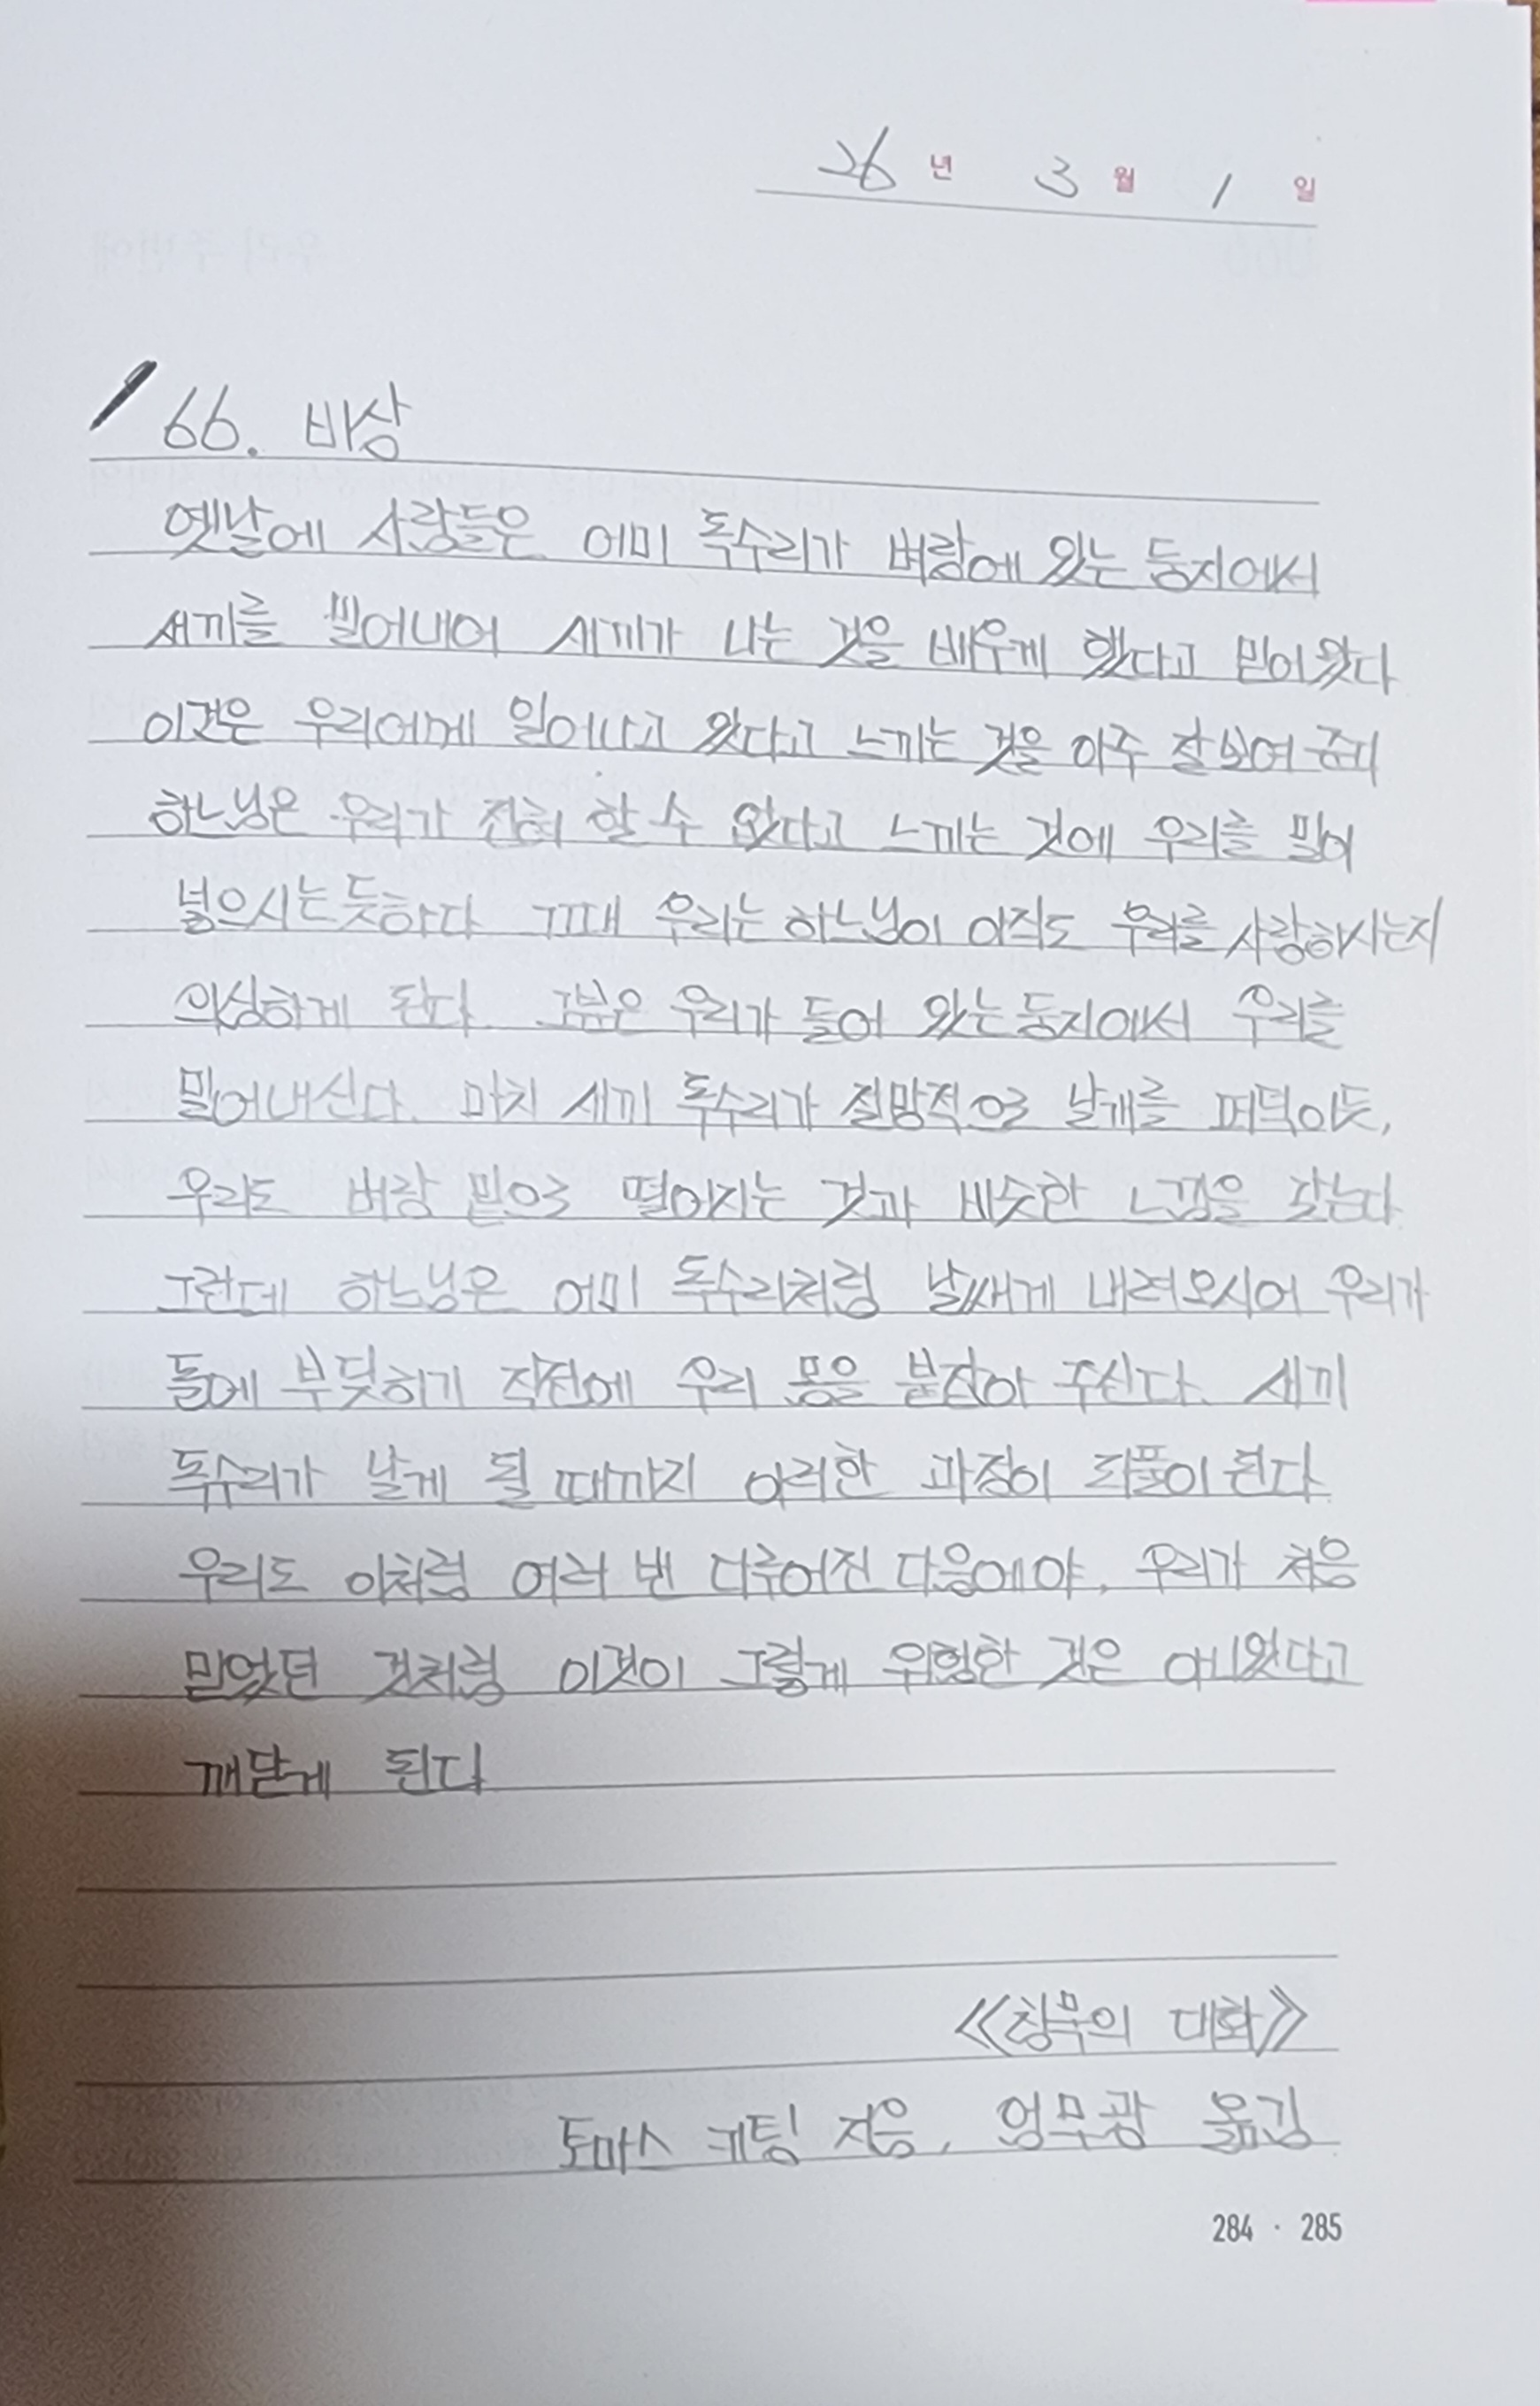 26년 3월 1일
66. 비상
옛날에 사람들은 어미 독수리가 벼랑에 있는 둥지에서
새끼를 밀어내어 새끼가 나는 것을 배우게 했다고 믿어왔다
이것은 우리에게 일어나고 있다고 느끼는 것을 아주 잘 보여 준다
하느님은 우리가 전혀 할 수 없다고 느끼는 것에 우리를 밀어
넣으시는 듯하다 그때 우리는 하느님이 아직도 우리를 사랑하시는지
의심하게 된다. 그분은 우리가 들어 있는 둥지에서 우리를
밀어내신다. 마치 새끼 독수리가 절망적으로 날개를 퍼덕이듯,
우리도 벼랑 밑으로 떨어지는 것과 비슷한 느낌을 갖는다
그런데 하느님은 어미 독수리처럼 날쌔게 내려오시어 우리가
돌에 부딪히기 직전에 우리 몸을 붙잡아 주신다. 새끼
독수리가 날게 될 때까지 이러한 과정이 되풀이 된다
우리도 이처럼 여러 번 다루어진 다음에야, 우리가 처음
믿었던 것처럼 이것이 그렇게 위험한 것은 아니었다고
깨닫게 된다
《침묵의 대화》
토마스 키팅 지음, 엄무광 옮김
284 · 285